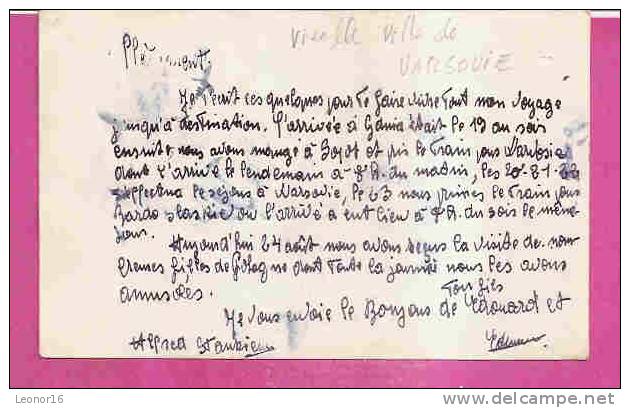 vieille ville de
VARSOVIE
Je t'écrit ces quelques jour te faire vivre tout mon voyage
jusqu'à destination. L'arrivée à Gdinia était le 19 au soir
ensuite nous avons mangé à Sopot et pris le train pour Varsovie
dont l'arrivé le lendemain à 8 h. du matin, les 20-21-22
s'effectua le séjour à Varsovie, le 23 nous primes le train pour
Bardo slaskie ou l'arrivé a eut lieu à h. du soir le même
jour.
Aujourd'hui 24 août nous avons reçus la visite de nom
breuses filles de Pologne dont toute la journée nous les avons
amusées.
Ton fils
Je vous envoie le Bonjour de Edouard et
Alfred
Leonor16
www.delcampe.net